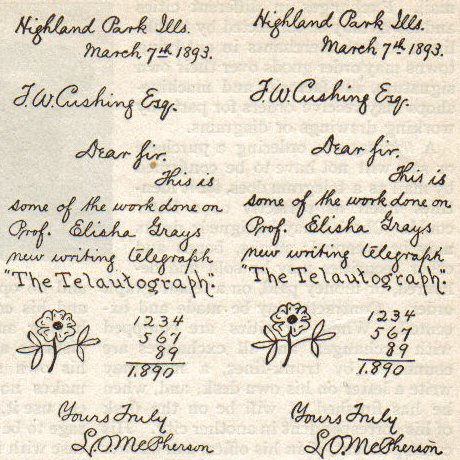 Highland Park Ills.
March 7th 1893.
F.W. Cushing Esq.
Dear Sir.
This is
some of the work done on
Prof. Elisha Grays
new writing telegraph
"The Telautograph".
1234
567
89
1,890
Yours Truly
L.O. McPherson
Highland Park Ills.
March 7th 1893.
F.W. Cushing Esq.
Dear Sir.
This is
some of the work done on
Prof. Elisha Grays
new writing telegraph
"The Telautograph".
1234
567
89
1,890
Yours Truly
L.O. McPherson